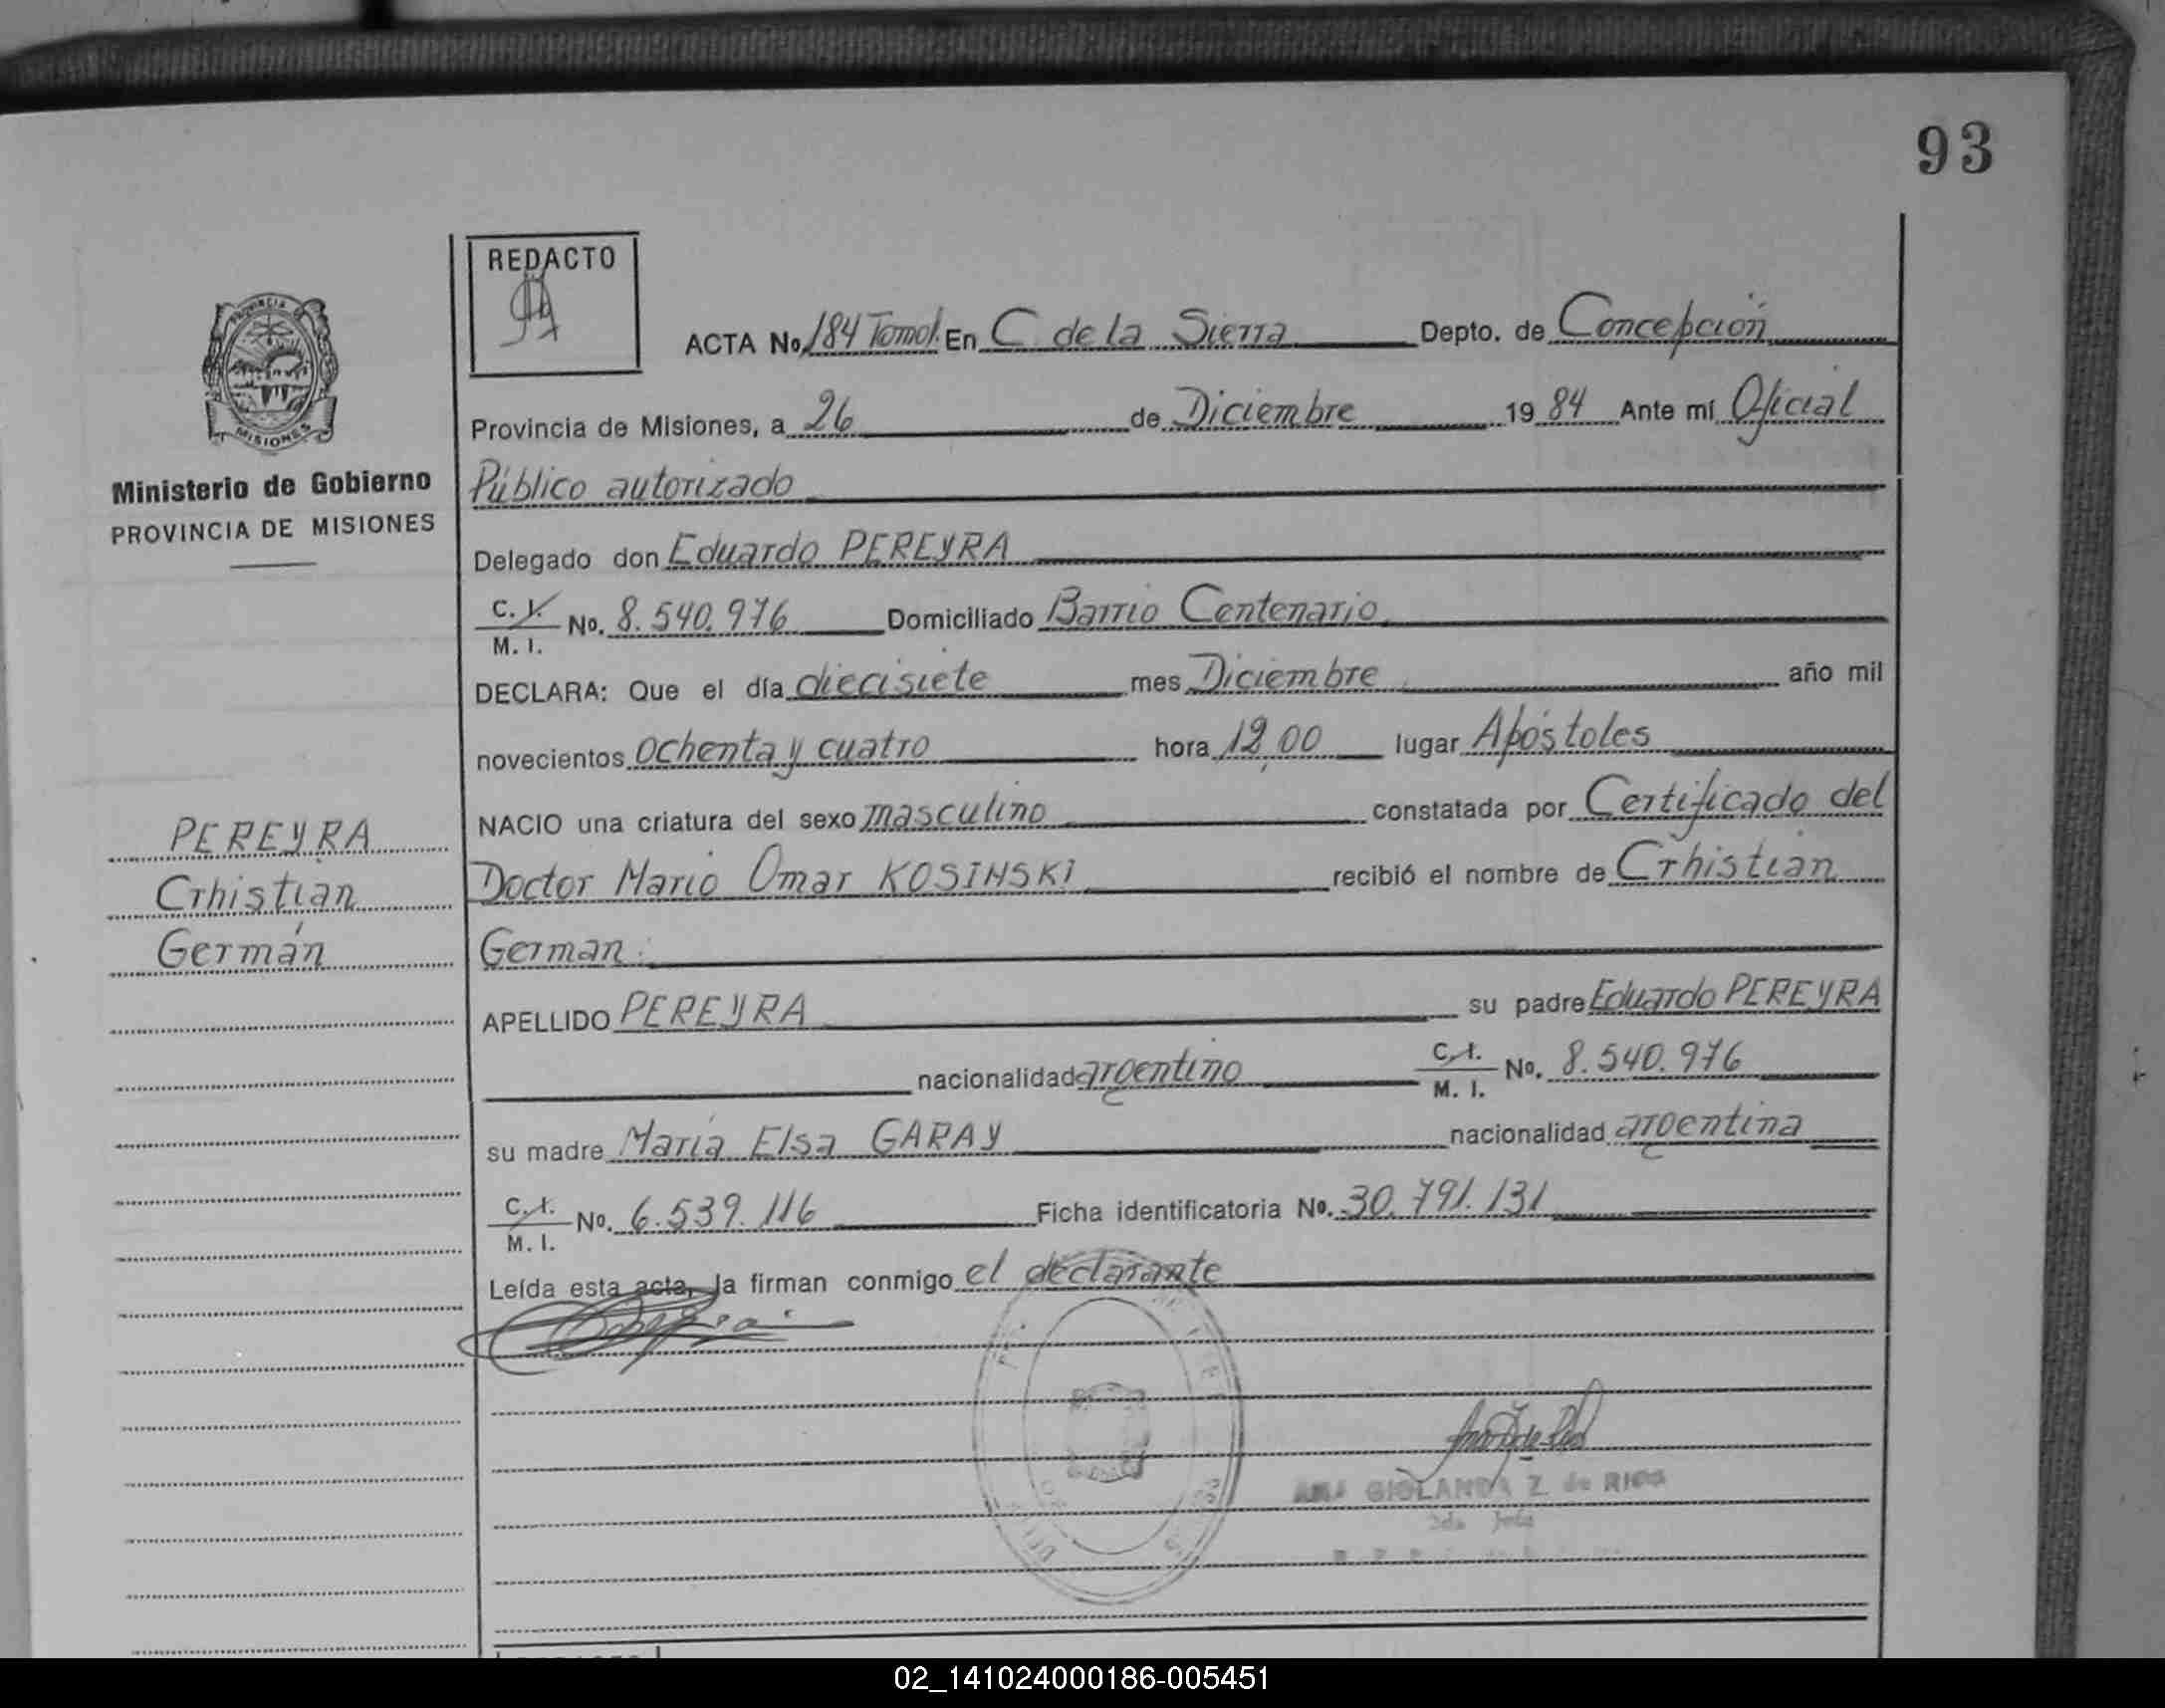 93
REDACTO
ACTA No. 184 Tomo I. En C. de la Sierra Depto. de Concepción
Provincia de Misiones, a 26 de Diciembre 1984 Ante mí Oficial
Ministerio de Gobierno
PROVINCIA DE MISIONES
Público autorizado
Delegado don Eduardo PEREYRA
C. I. / M. I. No. 8.540.976 Domiciliado Barrio Centenario
DECLARA: Que el día diecisiete mes Diciembre año mil
novecientos ochenta y cuatro hora 12,00 lugar Apóstoles
NACIO una criatura del sexo masculino constatada por Certificado del
Doctor Mario Omar KOSINSKI recibió el nombre de Crhistian
German.
PEREYRA
Crhistian
Germán
APELLIDO PEREYRA su padre Eduardo PEREYRA
nacionalidad argentino C. I. / M. I. No. 8.540.976
su madre María Elsa GARAY nacionalidad argentina
C. I. / M. I. No. 6.539.116 Ficha identificatoria No. 30.791.131
Leída esta acta, la firman conmigo el declarante
Z. de RIOS
02_141024000186-005451